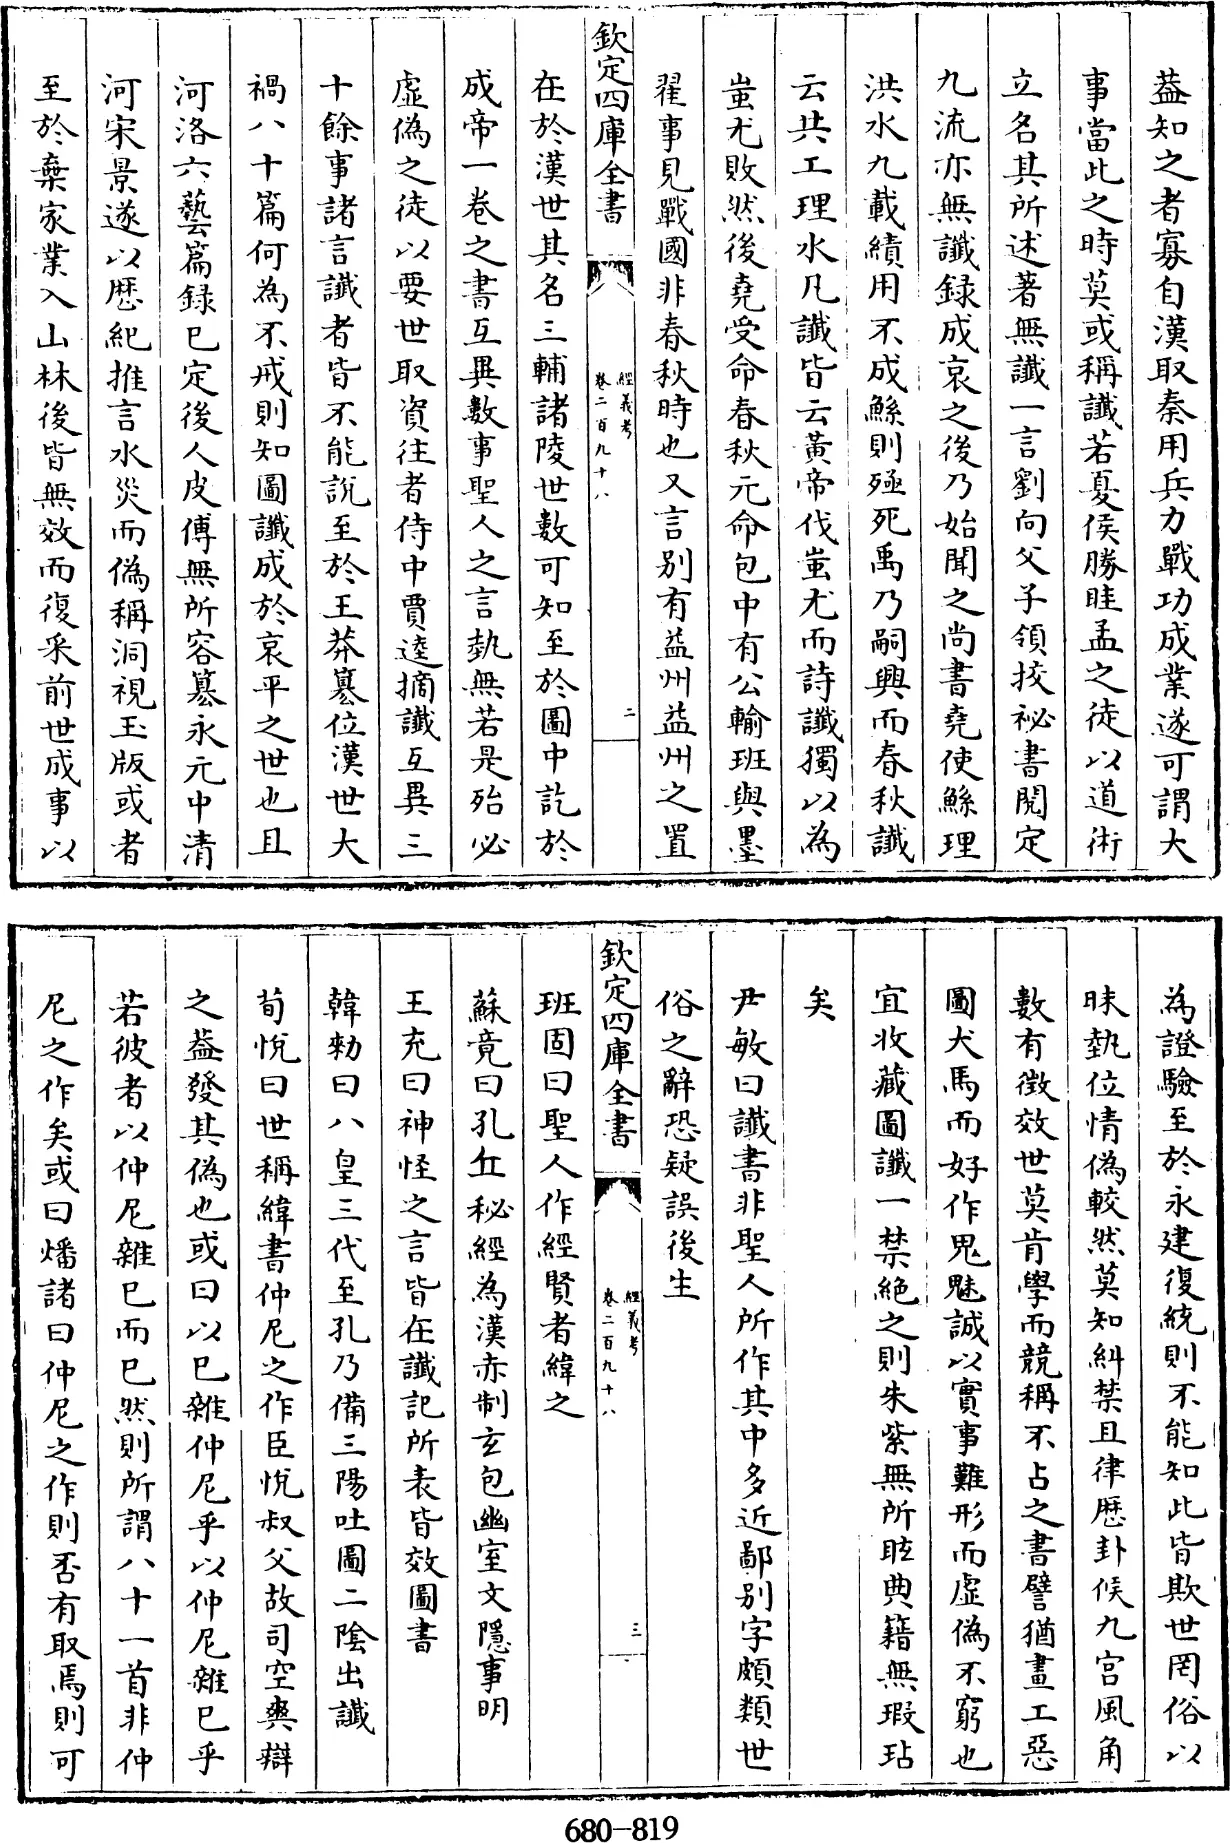 葢知之者寡自漢取秦用兵力戰功成業遂可謂大
事當此之時莫或稱讖若夏侯勝眭孟之徒以道術
立名其所述著無讖一言劉向父子領挍祕書閱定
九流亦無讖録成哀之後乃始聞之尚書堯使鯀理
洪水九載績用不成鯀則殛死禹乃嗣興而春秋讖
云共工理水凡讖皆云黃帝伐蚩尤而詩讖獨以為
蚩尤敗然後堯受命春秋元命包中有公輸班與墨
翟事見戰國非春秋時也又言别有益州益州之置
欽定四庫全書
經義考
卷二百九十八
二
在於漢世其名三輔諸陵世數可知至於圖中訖於
成帝一卷之書互異數事聖人之言埶無若是殆必
虛偽之徒以要世取資往者侍中賈逵摘讖互異三
十餘事諸言讖者皆不能說至於王莽簒位漢世大
禍八十篇何為不戒則知圖讖成於哀平之世也且
河洛六藝篇録已定後人皮傅無所容簒永元中清
河宋景遂以厯紀推言水災而偽稱洞視玉版或者
至於棄家業入山林後皆無效而復采前世成事以
為證驗至於永建復統則不能知此皆欺世罔俗以
昧埶位情偽較然莫知糾禁且律厯卦候九宫風角
數有徴效世莫肯學而競稱不占之書譬猶畫工惡
圖犬馬而好作鬼魅誠以實事難形而虛偽不窮也
宜收藏圖讖一禁絶之則朱紫無所眩典籍無瑕玷
矣
尹敏曰讖書非聖人所作其中多近鄙别字頗類世
俗之辭恐疑誤後生
欽定四庫全書
經義考
卷二百九十八
三
班固曰聖人作經賢者緯之
蘇竟曰孔丘秘經為漢赤制玄包幽室文隱事明
王充曰神怪之言皆在讖記所表皆效圖書
韓勑曰八皇三代至孔乃備三陽吐圖二陰出讖
荀悅曰世稱緯書仲尼之作臣悅叔父故司空爽辯
之葢發其偽也或曰以已雜仲尼乎以仲尼雜已乎
若彼者以仲尼雜已而已然則所謂八十一首非仲
尼之作矣或曰燔諸曰仲尼之作則否有取焉則可
680-819